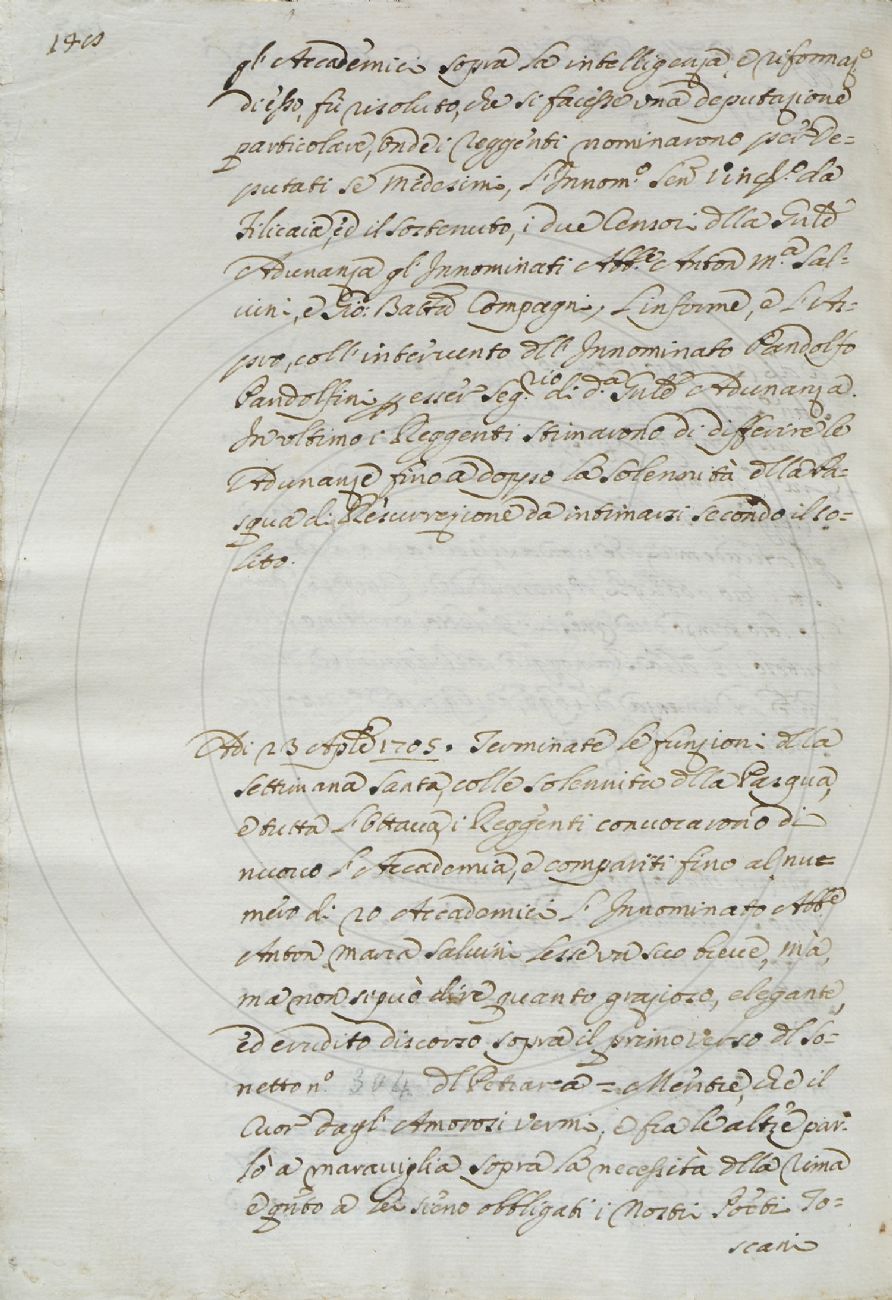 gl' Accademici sopra la intelligenza, e riformaz.e
di esso, fù risoluto, che si facesse una deputazione
particolare, onde i Reggenti nominarono per De=
putati se medesimi, l'Innom.o Sen.r Vinc.o da
Filicaia, ed il Sostenuto, i due Censori dlla Sud.a
Adunanza gl' Innominati Abb.e Anton M.a Sal=
vini, e Gio: Batta Compagni, l'Informe, e l'Ar=
sio, coll' intervento dll' Innominato Pandolfo
Pandolfini p esser Seg.rio di d.a Sud.a Adunanza.
In ultimo i Reggenti stimarono di differire le
Adunanze fino a doppo la solennità dlla Pa=
squa di Resurrezione da intimarsi secondo il so=
lito.
Adi 23 Aple 1705. Terminate le funzioni dlla
settimana santa, colle solennità dlla Pasqua,
e tutta l'ottava, i Reggenti convocarono di
nuovo l'Accademia, e compariti fino al nu=
mero di 20 Accademici l'Innominato Abb.e
Anton Maria Salvini lesse un suo breve, mà,
ma non si può dire quanto grazioso, elegante,
ed erudito discorso sopra il primo verso dl So=
netto n.o 304 dl Petrar.a = Mentre, che il
Cuor dagl' Amorosi vermi, e fra le altre par=
lò a maraviglia sopra la necessità dlla rima
e qnto a lei sieno obbligati i Nostri Poeti To=
scani